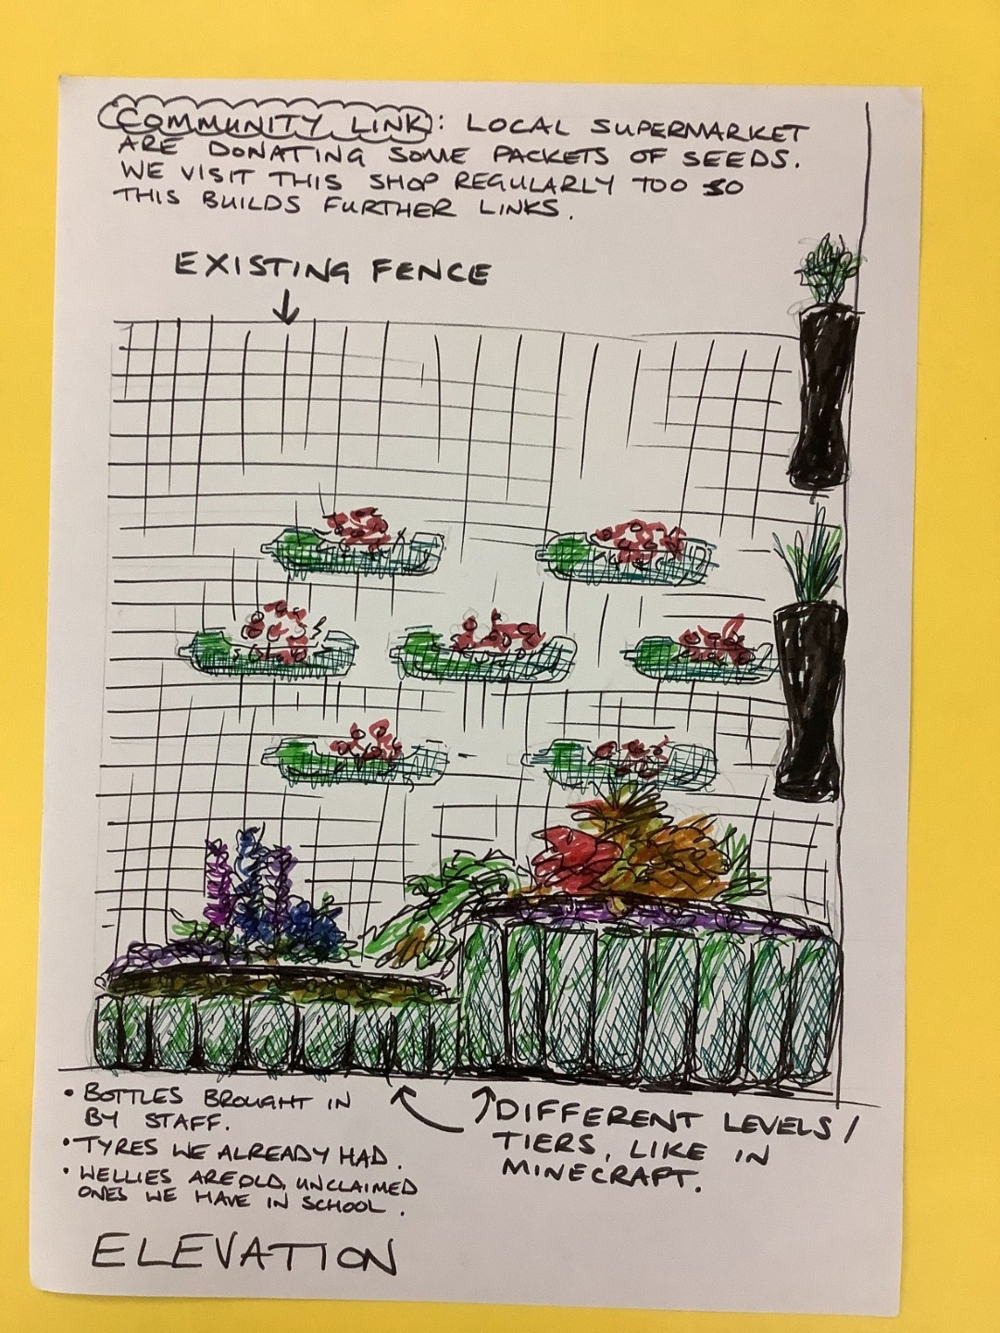 COMMUNITY LINK: LOCAL SUPERMARKET
ARE DONATING SOME PACKETS OF SEEDS.
WE VISIT THIS SHOP REGULARLY TOO SO
THIS BUILDS FURTHER LINKS.
EXISTING FENCE
• BOTTLES BROUGHT IN
BY STAFF.
• TYRES WE ALREADY HAD.
• WELLIES ARE OLD, UNCLAIMED
ONES WE HAVE IN SCHOOL.
DIFFERENT LEVELS/
TIERS, LIKE IN
MINECRAFT.
ELEVATION